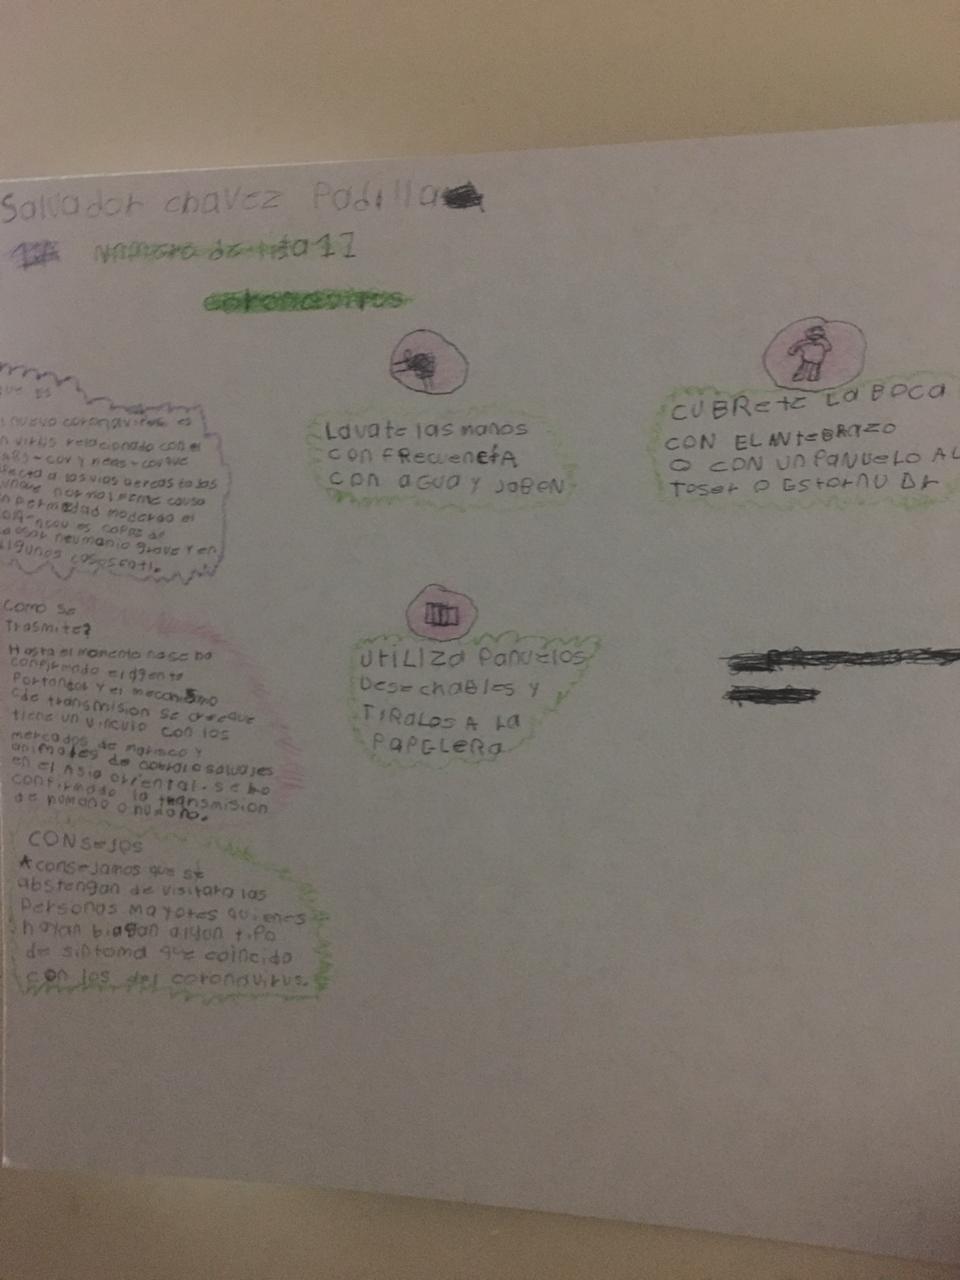 Salvador chavez Padilla
Número de lista 17
coronavirus
que es
nuevo coronavirus es
virus relacionado con el
cov y mers-cov que
a las vias aereas todas
normalmente causa
moderado el
ncov es capas de
neumonia grave y en
algunos casos
Como se
Trasmite?
Hasta el momento no se ha
confirmado el agente
Portandor y el mecanismo
de transmision se cree que
tiene un vinculo con los
mercados de marisco y
animales de corral o salvajes
en el Asia oriental. se ho
confirmado la transmision
de humano o humano.
CONSeJOS
Aconsejamos que se
abstengan de visitar a las
Personas mayores quienes
hayan algun tipo
de sintoma que coincida
con los del coronavirus.
Lavate las manos
con FRecuencia
con aGua y JaBON
CUBRete La BOCA
CON EL ANteBRAZO
O CON UN PANUELO AL
Toser O EStORNUDAr
UtiLIZa Panuelos
DesechaBLes y
TIRaLOS A La
PAPELeRa